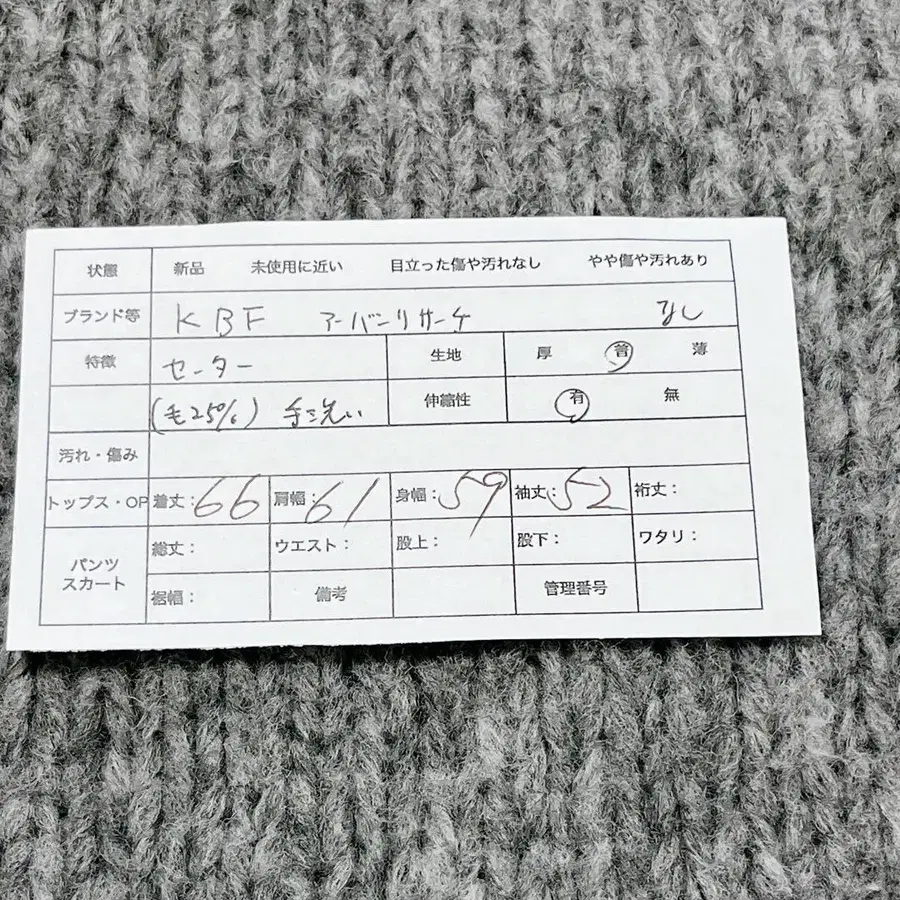 状態 新品 未使用に近い 目立った傷や汚れなし やや傷や汚れあり
ブランド等 KBF アーバンリサーチ なし
特徴 セーター 生地 厚 普 薄
(毛25%) 手洗い 伸縮性 有 無
汚れ・傷み
トップス・OP 着丈:66 肩幅:61 身幅:59 袖丈:52 裄丈:
パンツ スカート 総丈: ウエスト: 股上: 股下: ワタリ:
裾幅: 備考 管理番号